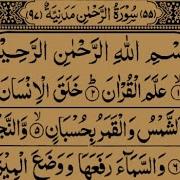 (۵۵) سُوْرَةُ الرَّحْمٰنِ مَدَنِيَّةٌ (۹۷)
بِسْمِ اللهِ الرَّحْمٰنِ الرَّحِيْمِ
عَلَّمَ الْقُرْاٰنَ ۲ خَلَقَ الْاِنْسَانَ
الشَّمْسُ وَالْقَمَرُ بِحُسْبَانٍ ۵ وَّالنَّجْمُ
وَالسَّمَآءَ رَفَعَهَا وَوَضَعَ الْمِيْزَانَ